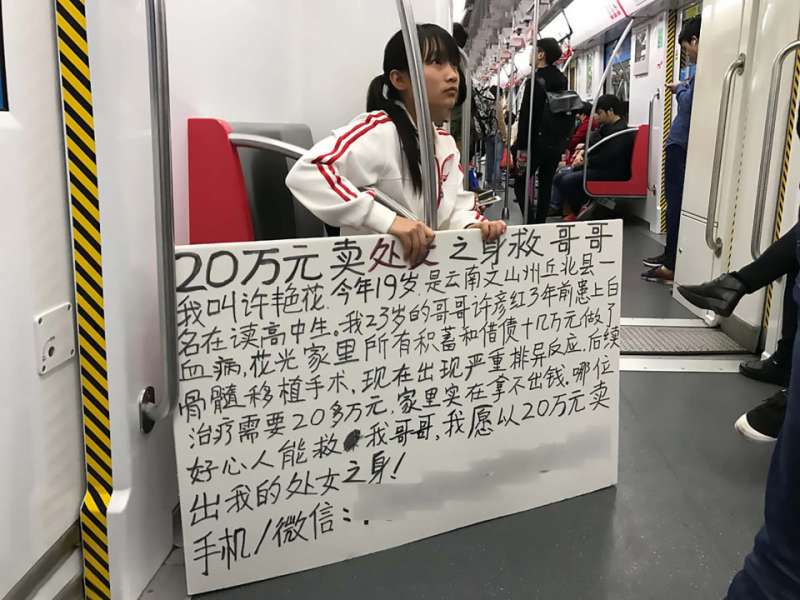 20万元卖处女之身救哥哥
我叫许艳花.今年19岁.是云南文山州丘北县一
名在读高中生。我23岁的哥哥许彦红3年前患上白
血病,花光家里所有积蓄和借债十几万元做了
骨髓移植手术,现在出现严重排异反应.后续
治疗需要20多万元.家里实在拿不出钱.哪位
好心人能救我哥哥,我愿以20万元卖
出我的处女之身!
手机/微信: